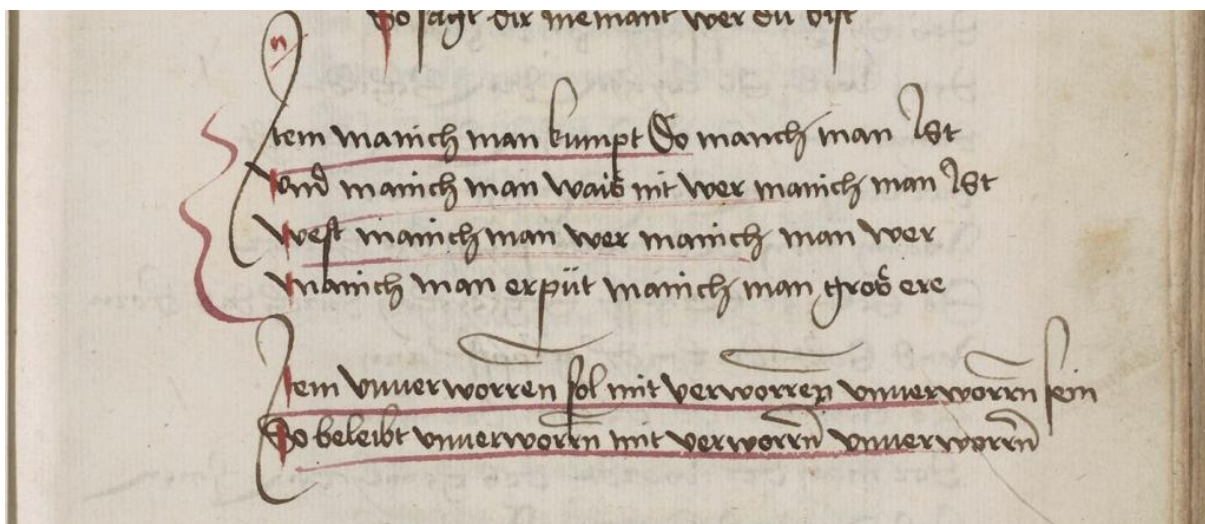 So sagt dir niemant wer du bist
n
Item manich man kumpt Do manch man Ist
vnd manich man waiß nit wer manich man Ist
west manich man wer manich man wer
manich man erpüt manich man groß ere
Item vnuerworren sol mit verworren vnuerworrn sein
So beleibt vnuerworrn mit verworrn vnuerworrn